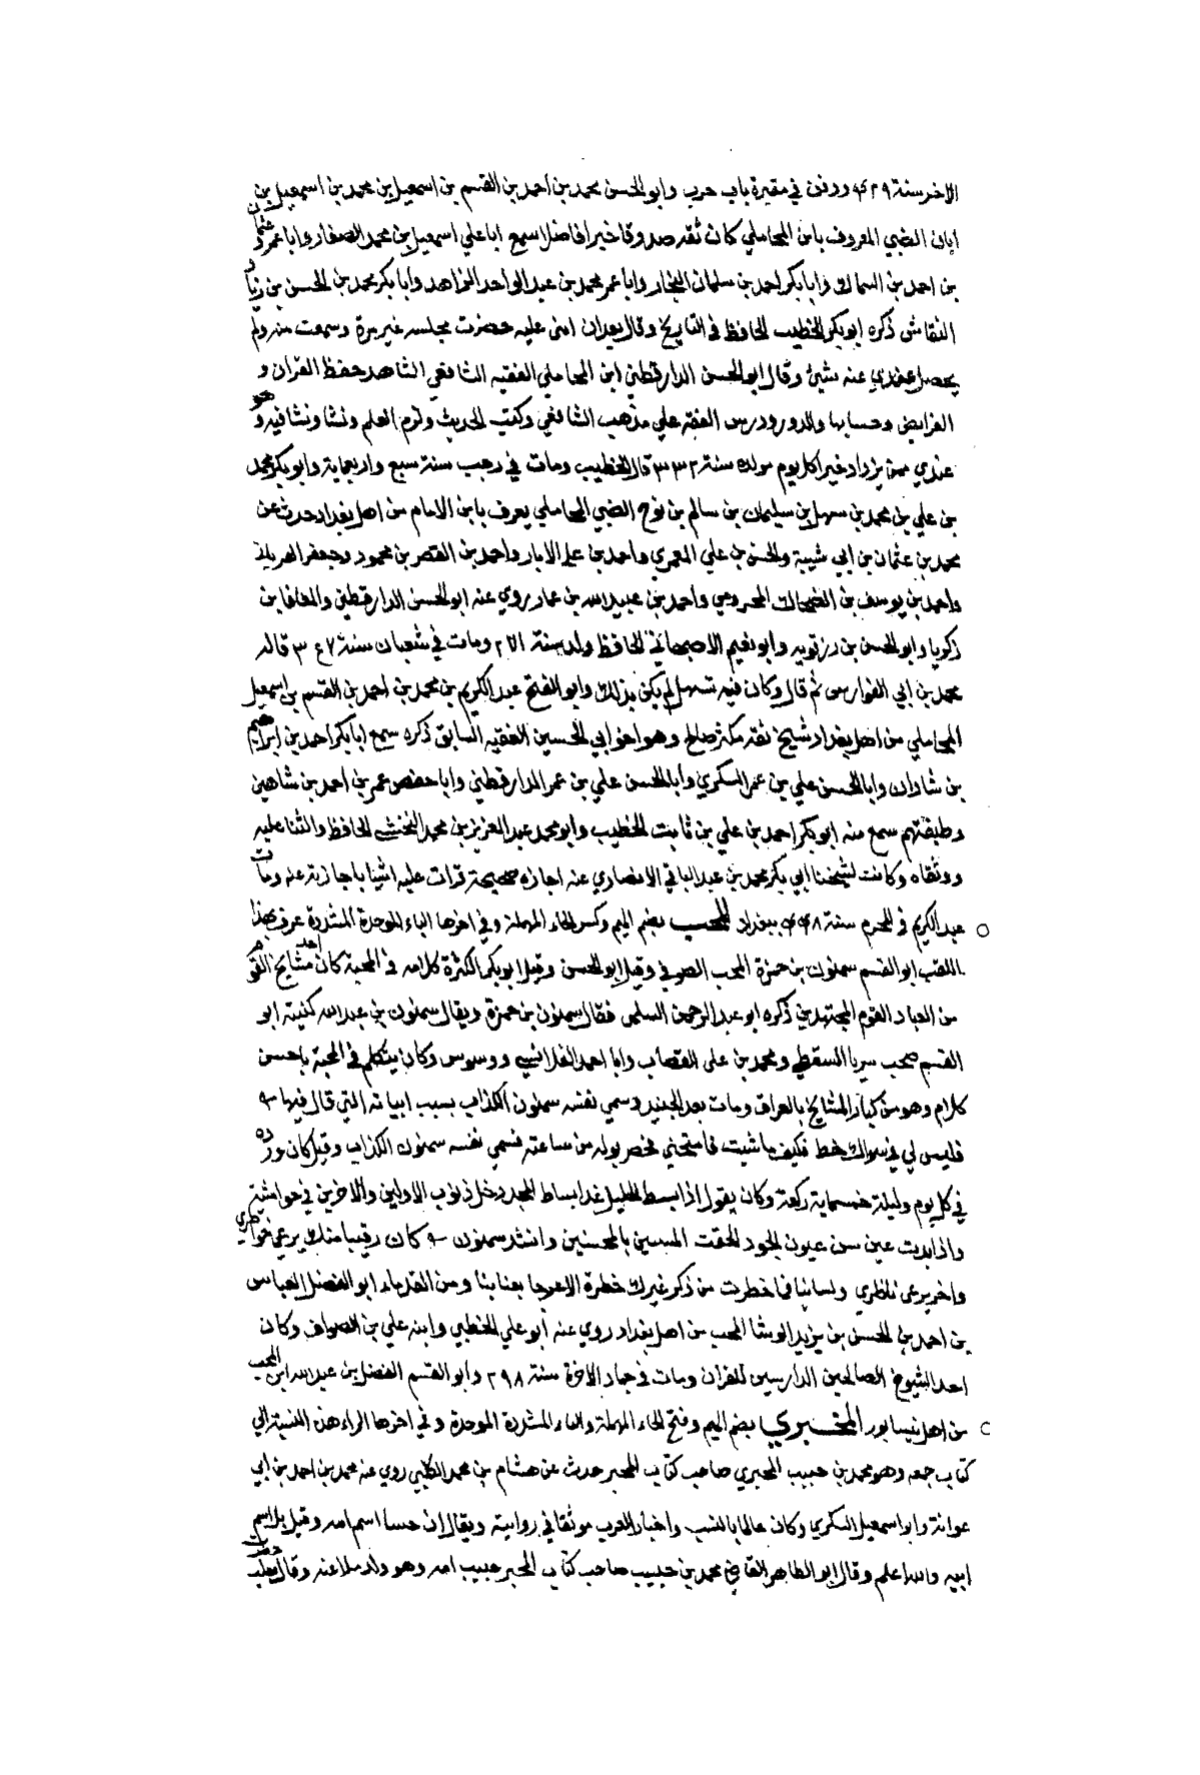 الاخر سنة ٤٢٩ ودفن في مقبرة باب حرب وابو الحسن محمد بن احمد بن القسم بن اسمعيل بن محمد بن اسمعيل بن
ابان الضبي المعروف بابن المحاملي كان ثقه صدوقا خيرا فاضلا سمع ابا علي اسمعيل بن محمد الصفار وابا عمرو عثمان
بن احمد بن السماك وابا بكر احمد بن سلمان النجار وابا عمر محمد بن عبد الواحد الزاهد وابا بكر محمد بن الحسن بن زياد
النقاش ذكره ابو بكر الخطيب الحافظ في التاريخ وقال بعد ان اثنى عليه حضرت مجلسه غير مرة وسمعت منه ولم
يحصل عندي عنه شيئ وقال ابو الحسن الدارقطني ابن المحاملي الفقيه الشافعي الشاهد حفظ القران و
الفرايض وحسابها والدور ودرس الفقه علي مذهب الشافعي وكتب الحديث ولزم العلم ونشا ونشا فيه وهو
عندي ممن يزداد خيرا كل يوم مولده سنة ٣٣٢ قال الخطيب ومات في رجب سنة سبع واربعماية وابو بكر محمد
بن علي بن محمد بن سهل بن سليمان بن سالم بن نوح الضبي المحاملي يعرف بابن الامام من اهل بغداد حدث عن
محمد بن عثمان بن ابي شيبة والحسن بن علي المعمري واحمد بن علي الابار واحمد بن القصر بن محمود وجعفر الفريابي
واحمد بن يوسف بن الضحاك المخرومي واحمد بن عبيد الله بن عمار روي عنه ابو الحسن الدارقطني والمعافا بن
زكريا وابو الحسن بن رزقويه وابو نعيم الاصبهاني الحافظ ولد سنة ٢٧١ ومات في شعبان سنة ٣٤٧ قاله
محمد بن ابي الفوارس ثم قال وكان فيه تسهل لم يكن بذلك وابو الفتح عبد الكريم بن محمد بن احمد بن القسم بن اسمعيل
المحاملي من اهل بغداد شيخ ثقه مكثر صالح وهو اخو ابي الحسين الفقيه السابق ذكره سمع ابا بكر احمد بن ابراهيم
بن شاوان وابا الحسن علي بن عمر السكري وابا الحسن علي بن عمر الدارقطني وابا حفص عمر بن احمد بن شاهين
وطبقتهم سمع منه ابو بكر احمد بن علي بن ثابت الخطيب وابو محمد عبد العزيز بن محمد النخشبي الحافظ والثنا عليه
ووثقاه وكانت لشيخنا ابي بكر محمد بن عبد الباقي الانصاري عنه اجازه صحيحة قرات عليه اشيا باجازته عنه ومات
عبد الكريم في المحرم سنة ٤٤٨ ببغداد المحب بضم الميم وكسر الحاء المهملة وفي اخرها الباء الموحدة المشددة عرف بهذا
اللقب ابو القسم سمنون بن حمزة المحب الصوفي وقيل ابو الحسن وقيل ابو بكر لكثرة كلامه في المحبة كان احد مشايخ القوم
من العباد القوم المجتهدين ذكره ابو عبد الرحمن السلمي فقال سمنون بن حمزة ويقال سمنون بن عبد الله كنيته ابو
القسم صحب سريا السقطي ومحمد بن علي القصاب وابا احمد القلانسي ووسوس وكان يتكلم في المحبة باحسن
كلام وهو من كبار المشايخ بالعراق ومات بعد الجنيد وسمي نفسه سمنون الكذاب بسبب ابياته التي قال فيها
فليس لي في سواك حظ فكيف ما شيت فامتحني فحصر بوله من ساعته فسمي نفسه سمنون الكذاب وقيل كان ورده
في كل يوم وليلة خمسماية ركعة وكان يقول اذا بسط الجليل غدا بساط المجد دخل ذنوب الاولين والاخرين في حواشيه
واذا ابدت عين من عيون الجود الحقت المسيين بالمحسنين وانشد سمنون كان رقيبا منك يرعى خواطري
واخر يرعى ناظري ولسانيا فما خطرت من ذكر غيرك خطرة الا عرجا بعنانيا ومن القدماء ابو الفضل العباس
بن احمد بن الحسن بن يزيد الوشا المحب من اهل بغداد روي عنه ابو علي الخطبي وابنه علي بن الصواف وكان
احد الشيوخ الصالحين الدارسين للقران ومات في جماد الاخرة سنة ٢٩٨ وابو القسم الفضل بن عبد الله ابن المحب
من اهل نيسابور المحبري بضم الميم وفتح الحاء المهملة والباء المشددة الموحدة وفي اخرها الراء هذه النسبة الي
كتاب جمعه وهو محمد بن حبيب المحبري صاحب كتاب المحبر حدث عن هشام بن محمد الكلبي روي عنه محمد بن احمد بن ابي
عوانة وابو اسمعيل السكري وكان عالما بالنسب واخبار العرب موثقا في روايته ويقال ان حسا اسم امه وقيل بل اسم
ابيه والله اعلم وقال ابو الطاهر القاضي محمد بن حبيب صاحب كتاب المحبر حبيب امه وهو ولد ملاعنه وقال ثعلب حضرت